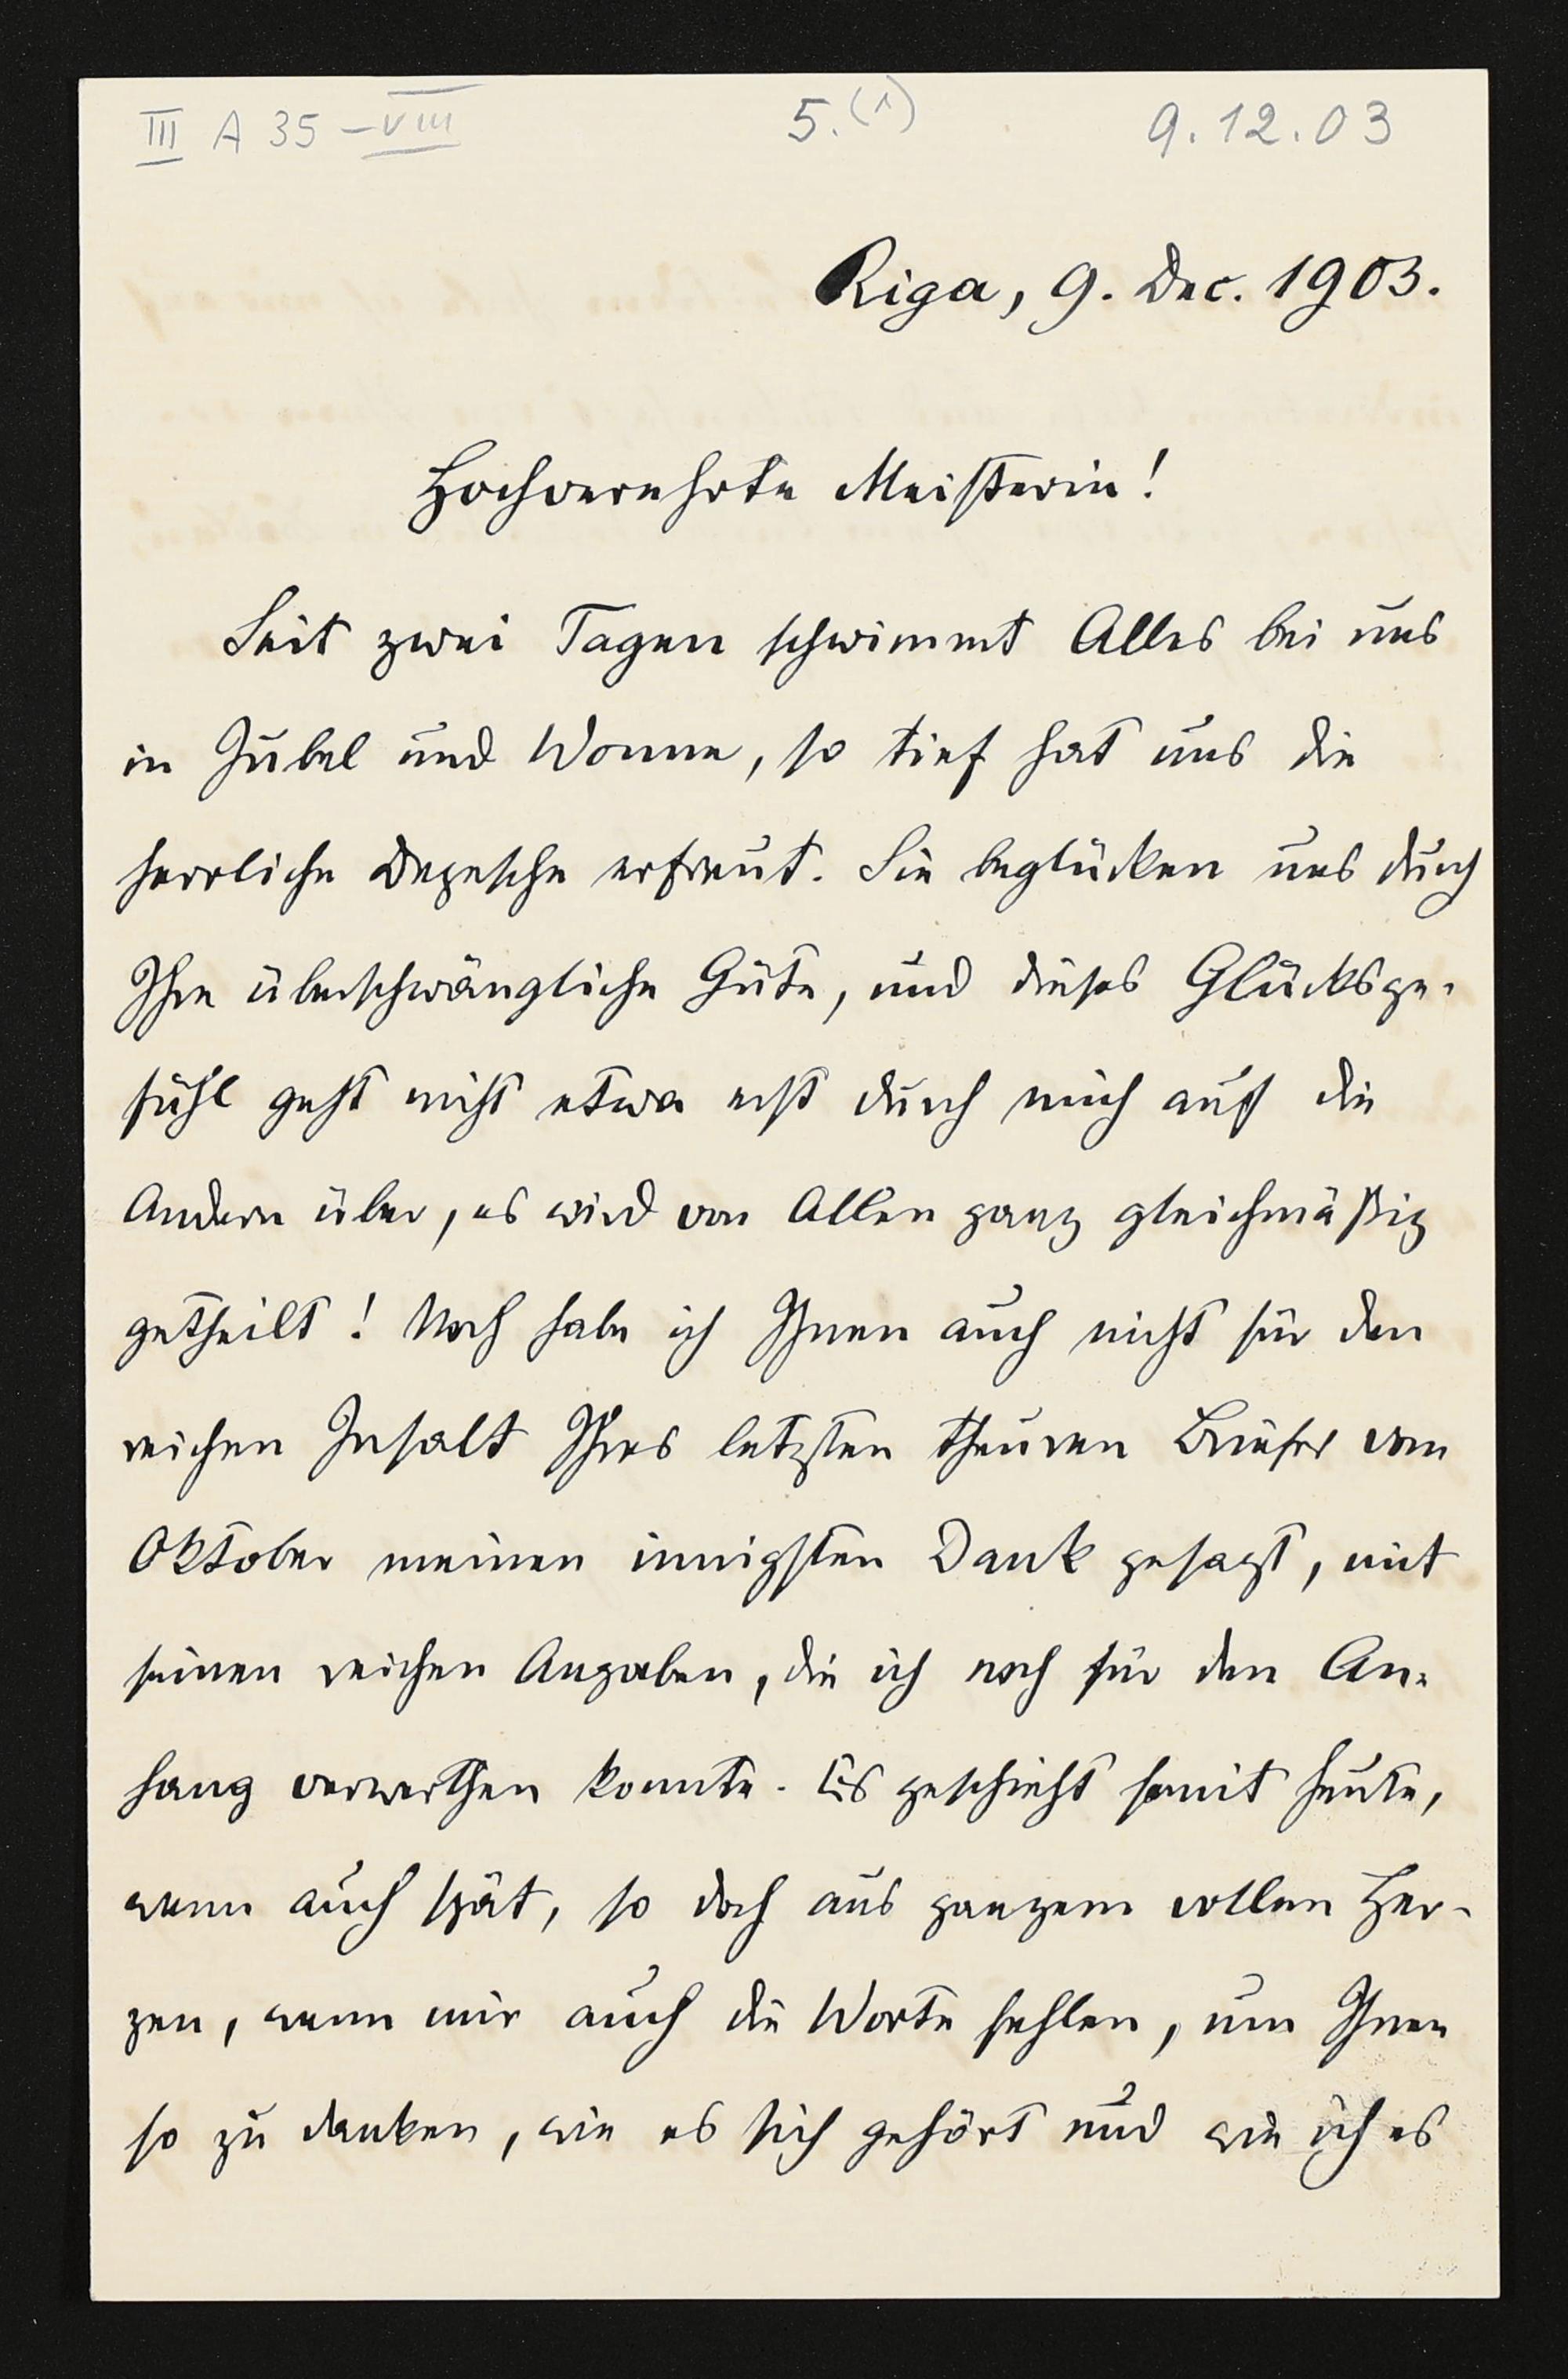 III A 35 – VIII 5. (1) 9.12.03
Riga, 9. Dec. 1903.
Hochverehrte Meisterin!
Seit zwei Tagen schwimmt Alles bei uns
in Jubel und Wonne, so tief hat uns die
herrliche Depesche erfreut. Sie beglücken uns durch
Ihre überschwängliche Güte, und dieses Glücksge-
fühl geht nicht etwa erst durch mich auf die
Andern über, es wird von Allen ganz gleichmäßig
getheilt! Noch habe ich Ihnen auch nicht für den
reichen Inhalt Ihres letzten theuren Briefes vom
Oktober meinen innigsten Dank gesagt, mit
seinen reichen Angaben, die ich noch für den An-
hang verwerthen konnte. Es geschieht somit heute,
wenn auch spät, so doch aus ganzem vollen Her-
zen, wenn mir auch die Worte fehlen, um Ihnen
so zu danken, wie es sich gehört und wie ich es